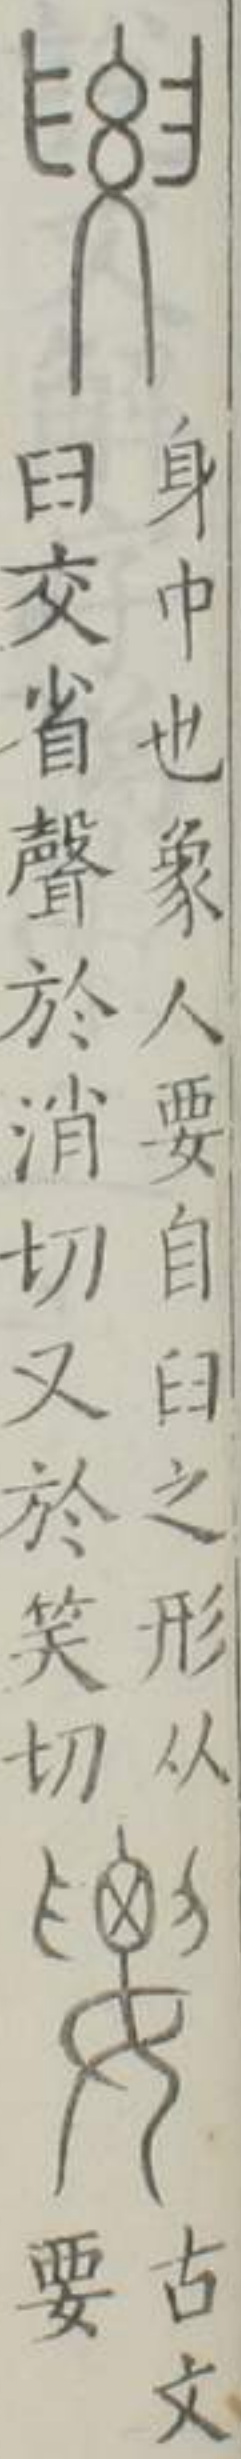 身中也象人要自𦥑之形从
𦥑交省聲於消切又於笑切
古文
要